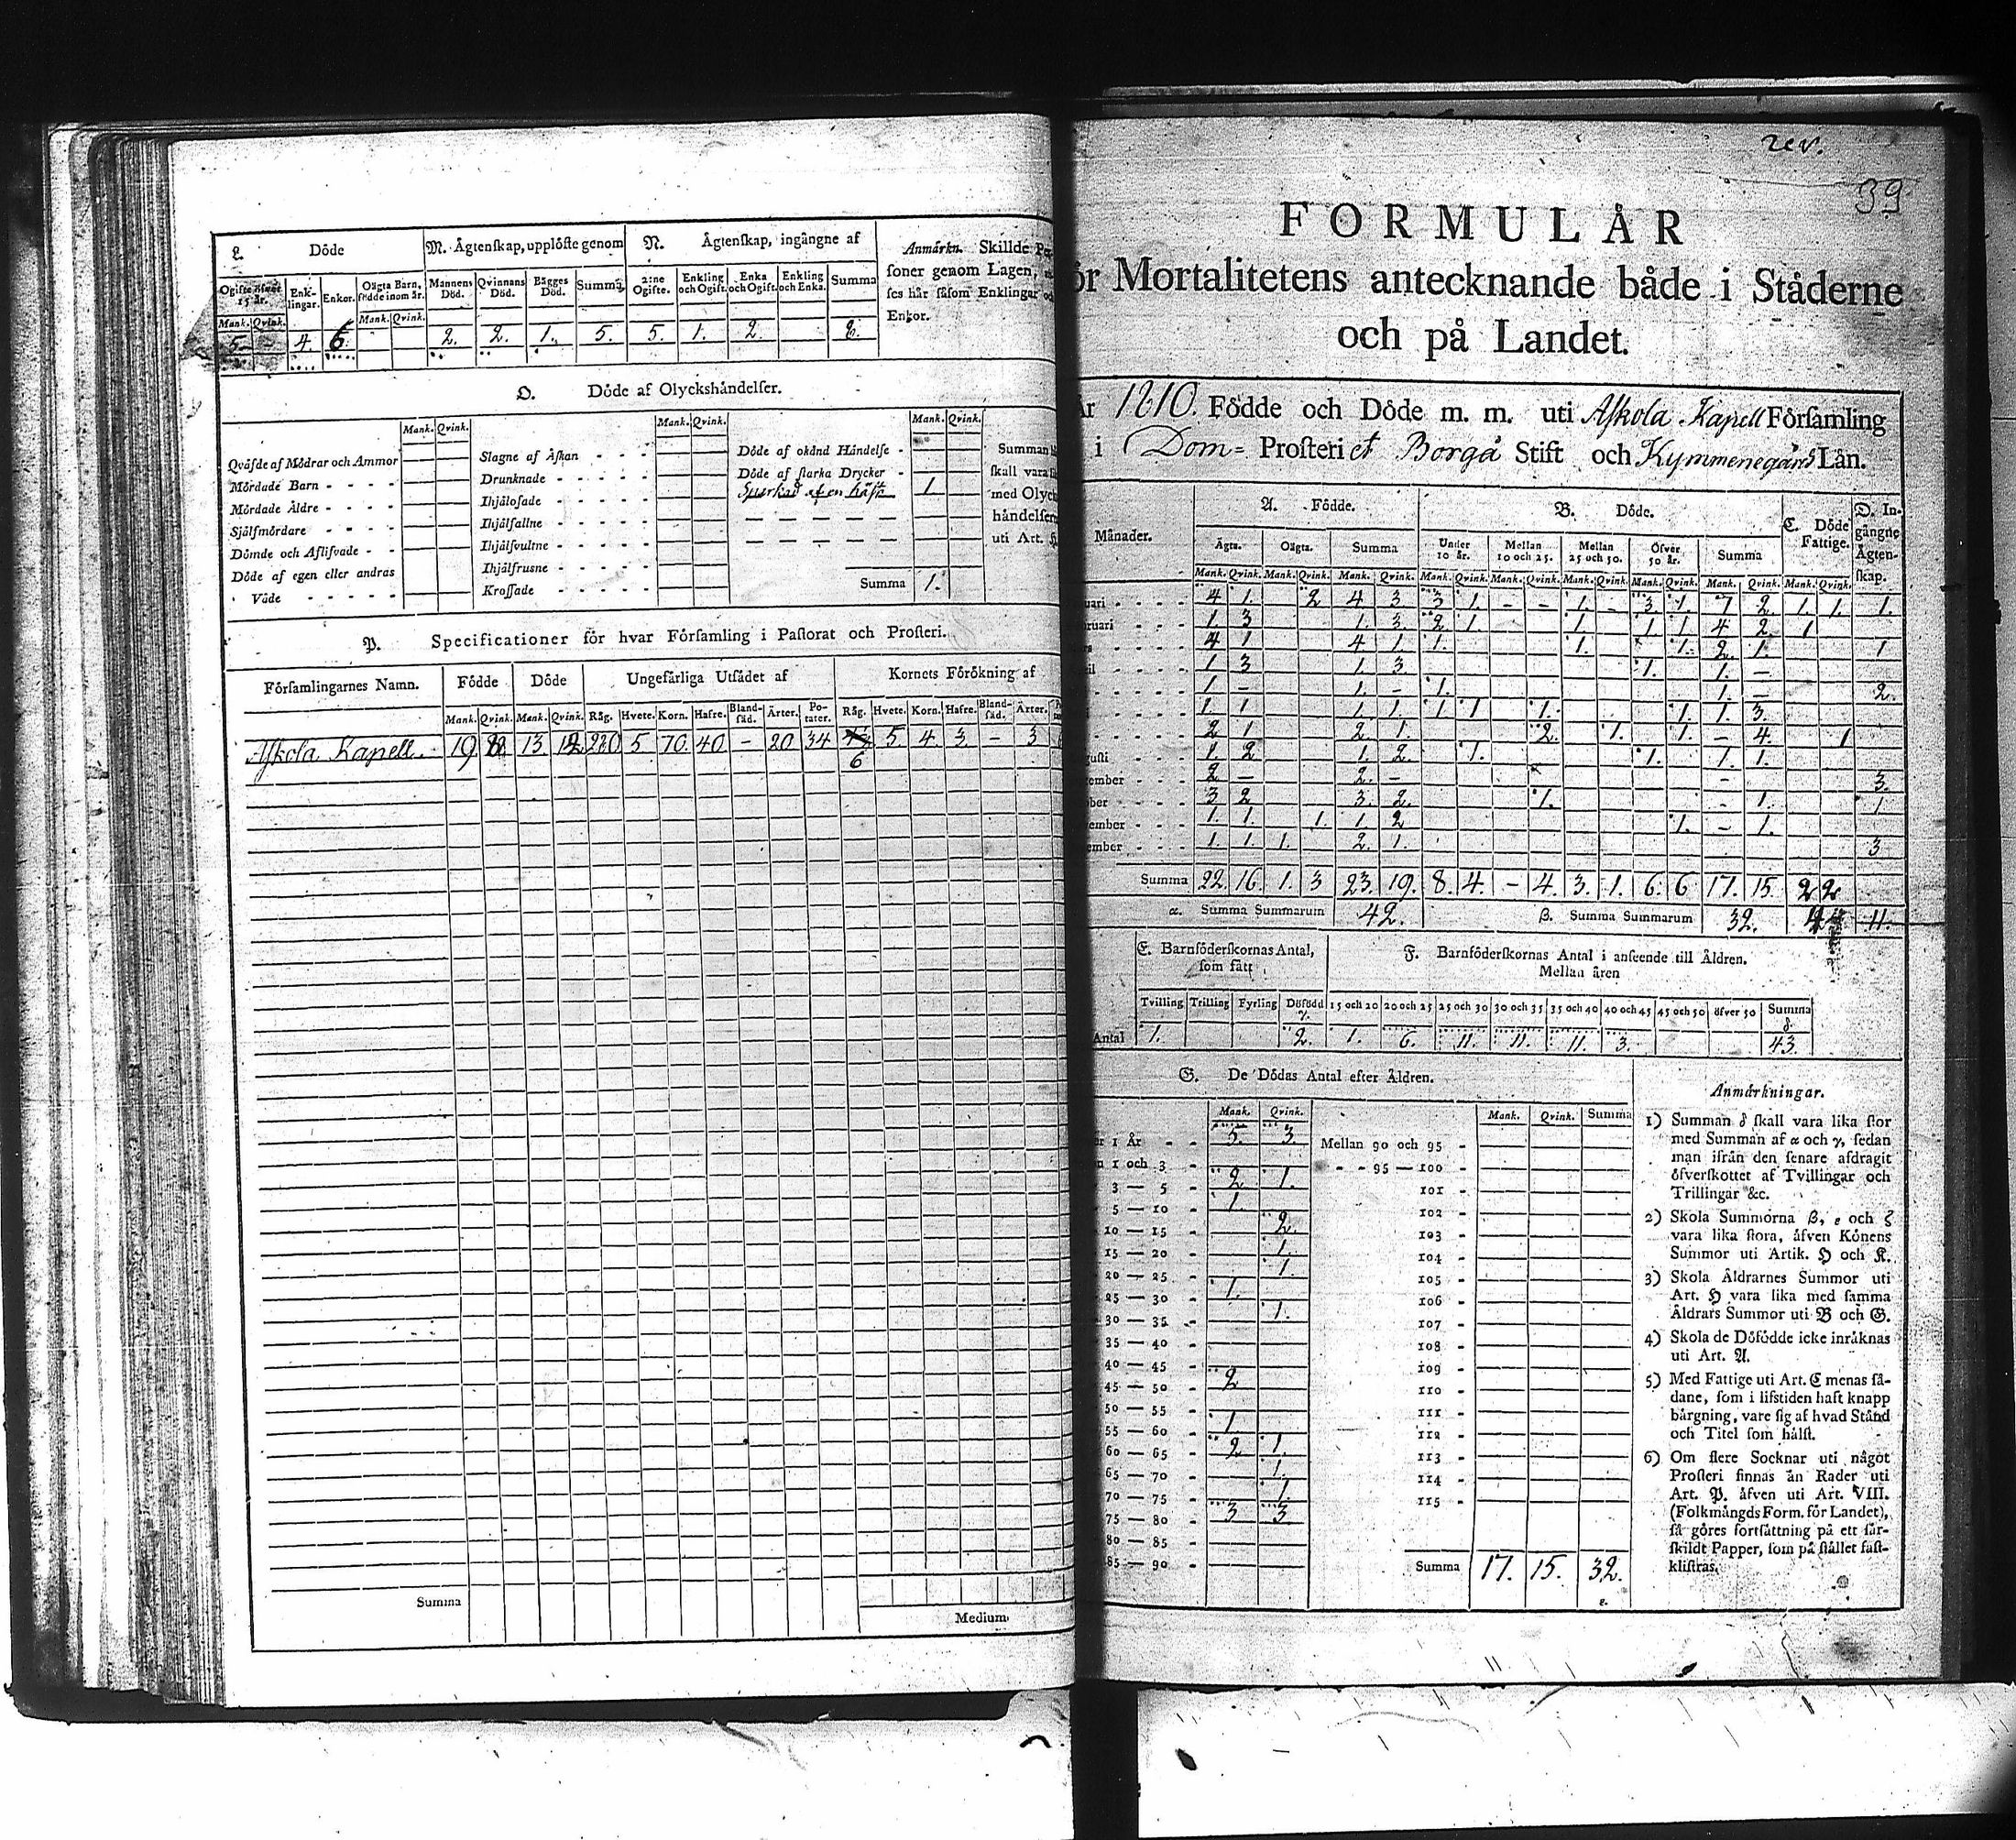 L. Döde
M. Ägtenskap, upplöste genom
N. Ägtenskap, ingångne af
Anmärkn. Skillde Per
soner genom Lagen,
ses här såsom Enklingar och
Enkor.
Ogifte öfver 15 år. Enk-lingar. Enkor. Oägta Barn, födde inom år. Mannens Död. Qvinnans Död. Bägges Död. Summa 2:ne Ogifte. Enkling och Ogift. Enka och Ogift. Enkling och Enka. Summa
Mank. Qvink. Mank. Qvink.
5. - 4. 6. 2. 2. 1. 5. 5. 1. 2. 8.
O. Döde af Olyckshändelser.
Mank. Qvink. Mank. Qvink. Mank. Qvink.
Qväfde af Mödrar och Ammor
Mördade Barn - - - -
Mördade Äldre - - - -
Självmördare - - - -
Dömde och Aflifvade - -
Döde af egen eller andras
Våde - - - - -
Slagne af Åskan - - -
Drunknade - - - - -
Ihjälosade - - - - -
Ihjälfallne - - - - -
Ihjälsvultne - - - - -
Ihjälfrusne - - - - -
Krossade - - - - -
Döde af okänd Händelse -
Döde af starka Drycker -
Sparkad af en häst 1.
Summa 1.
Summan
skall vara
med Olyck
händelsern
uti Art. H
P. Specificationer för hvar Församling i Pastorat och Prosteri.
Församlingarnes Namn. Födde Döde Ungefärliga Utsädet af Kornets Förökning af
Mank. Qvink. Mank. Qvink. Råg. Hvete. Korn. Hafre. Bland-säd. Ärter. Po-tater. Råg. Hvete. Korn. Hafre. Bland-säd. Ärter.
Askola Kapell. 19 13 12 220 5 70 40 - 20 34 5. 4. 3. - 3
6
Summa
Medium
rev.
39
FORMULÄR
ör Mortalitetens antecknande både i Städerne
och på Landet.
År 1810. Födde och Döde m. m. uti Askola Kapell Församling
i Dom= Prosteri et Borgå Stift och Kymmenegårds Län.
Månader. A. Födde. B. Döde. C. Döde Fattige. D. In-gångne Ägten-skap.
Ägta. Oägta. Summa Under 10 år. Mellan 10 och 25. Mellan 25 och 50. Öfver 50 år. Summa
Mank. Qvink. Mank. Qvink. Mank. Qvink. Mank. Qvink. Mank. Qvink. Mank. Qvink. Mank. Qvink. Mank. Qvink. Mank. Qvink.
uari 4 1. 2 4 3 3 1. - - 1. - 3. 1. 7 2. 1. 1. 1.
ruari 1. 3 1. 3. 2. 1. 1 1. 1 4 2. 1
4 1 4 1. 1. 1. 1. 2. 1. 1
il 1 3 1. 3. 1. 1. -
1 - 1. - 1. 1. - 2.
1 1 1. 1. 1 1 1. 1. 1. 3.
2 1 2. 1. 2. 1. 1. - 4. 1
gusti 1. 2 1. 2. 1. 1. 1. 1.
tember 2 - 2. - - 3.
ber 3 2 3. 2. 1. - 1. 1
ember 1. 1. 1. 1. 2 1. - 1.
ember 1. 1. 1. 2. 1. 3
Summa 22. 16. 1. 3 23. 19. 8. 4. - 4. 3. 1. 6. 6 17. 15. 2 2
α. Summa Summarum 42. β. Summa Summarum 32. 11.
E. Barnföderskornas Antal, som fått
F. Barnföderskornas Antal i anseende till Åldren.
Mellan åren
Tvilling Trilling Fyrling Döfödd γ. 15 och 20 20 och 25 25 och 30 30 och 35 35 och 40 40 och 45 45 och 50 öfver 50 Summa δ.
Antal 1. 2. 1. 6. 11. 11. 11. 3. 43.
G. De Dödas Antal efter Åldren.
Mank. Qvink. Mank. Qvink. Summa
r 1 År - - 5. 3.
n 1 och 3 - 2 1.
3 — 5 - 1.
5 — 10 -
10 — 15 - 2.
15 — 20 - 1.
20 — 25 - 1.
25 — 30 - 1.
30 — 35 - 1.
35 — 40 -
40 — 45 -
45 — 50 - 2
50 — 55 -
55 — 60 - 1
60 — 65 - 2 1.
65 — 70 - 1.
70 — 75 - 1
75 — 80 - 3 3
80 — 85 -
85 — 90 -
Mellan 90 och 95 -
- - 95 — 100 -
101 -
102 -
103 -
104 -
105 -
106 -
107 -
108 -
109 -
110 -
111 -
112 -
113 -
114 -
115 -
Summa 17. 15. 32.
ε.
Anmärkningar.
1) Summan δ skall vara lika stor
med Summan af α och γ, sedan
man ifrån den senare afdragit
öfverskottet af Tvillingar och
Trillingar &c.
2) Skola Summorna β, ε och ζ
vara lika stora, äfven Könens
Summor uti Artik. H och K.
3) Skola Åldrarnes Summor uti
Art. H vara lika med samma
Åldrars Summor uti B och G.
4) Skola de Döfödde icke inräknas
uti Art. A.
5) Med Fattige uti Art. C menas så-
dane, som i lifstiden haft knapp
bärgning, vare sig af hvad Stånd
och Titel som hälst.
6) Om flere Socknar uti något
Prosteri finnas än Rader uti
Art. P. äfven uti Art. VIII.
(Folkmängds Form. för Landet),
så göres fortsättning på ett sär-
skildt Papper, som på stället fast-
klistras.